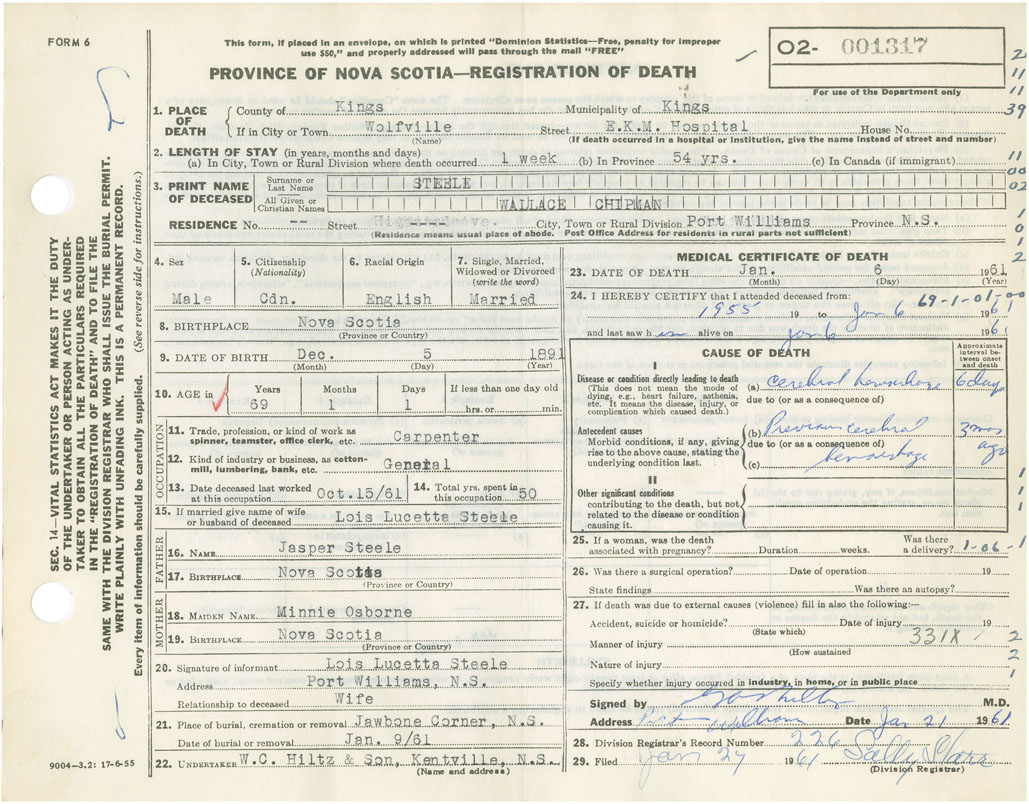 FORM 6
This form, if placed in an envelope, on which is printed "Dominion Statistics—Free, penalty for improper
use $50," and properly addressed will pass through the mail "FREE"
O2- 001317
For use of the Department only
PROVINCE OF NOVA SCOTIA—REGISTRATION OF DEATH
2
11
11
39
1. PLACE OF DEATH
County of Kings Municipality of Kings
If in City or Town Wolfville Street E.K.M. Hospital House No.
(Name) (If death occurred in a hospital or institution, give the name instead of street and number)
2. LENGTH OF STAY (in years, months and days)
(a) In City, Town or Rural Division where death occurred 1 week (b) In Province 54 yrs. (c) In Canada (if immigrant)
11
00
02
1
0
1
2
3. PRINT NAME OF DECEASED
Surname or Last Name STEELE
All Given or Christian Names WALLACE CHIPMAN
RESIDENCE No. -- Street Ave. City, Town or Rural Division Port Williams Province N.S.
(Residence means usual place of abode. Post Office Address for residents in rural parts not sufficient)
4. Sex
Male
5. Citizenship (Nationality)
Cdn.
6. Racial Origin
English
7. Single, Married, Widowed or Divorced (write the word)
Married
8. BIRTHPLACE Nova Scotia
(Province or Country)
9. DATE OF BIRTH Dec. 5 1891
(Month) (Day) (Year)
10. AGE in
Years Months Days If less than one day old
69 1 1 hrs. or min.
OCCUPATION
11. Trade, profession, or kind of work as
spinner, teamster, office clerk, etc. Carpenter
12. Kind of industry or business, as cotton-
mill, lumbering, bank, etc. General
13. Date deceased last worked
at this occupation Oct.15/61
14. Total yrs. spent in
this occupation 50
15. If married give name of wife
or husband of deceased Lois Lucetta Steele
FATHER
16. NAME Jasper Steele
17. BIRTHPLACE Nova Scotia
(Province or Country)
MOTHER
18. MAIDEN NAME Minnie Osborne
19. BIRTHPLACE Nova Scotia
(Province or Country)
20. Signature of informant Lois Lucetta Steele
Address Port Williams, N.S.
Relationship to deceased Wife
21. Place of burial, cremation or removal Jawbone Corner, N.S.
Date of burial or removal Jan. 9/61
22. UNDERTAKER W.C. Hiltz & Son, Kentville, N.S.
(Name and address)
MEDICAL CERTIFICATE OF DEATH
23. DATE OF DEATH Jan. 6 1961
(Month) (Day) (Year)
24. I HEREBY CERTIFY that I attended deceased from: 69-1-01-00
1955 19 to Jan 6 1961
and last saw him alive on Jan 6 1961
CAUSE OF DEATH
Approximate interval between onset and death
I
Disease or condition directly leading to death
(This does not mean the mode of
dying, e.g., heart failure, asthenia,
etc. It means the disease, injury, or
complication which caused death.)
(a) cerebral hemorrhage 6 days
due to (or as a consequence of)
Antecedent causes
Morbid conditions, if any, giving
rise to the above cause, stating the
underlying condition last.
(b) Previous cerebral 3 mos ago
due to (or as a consequence of)
(c) hemorrhage
II
Other significant conditions
contributing to the death, but not
related to the disease or condition
causing it.
1
1
1
25. If a woman, was the death
associated with pregnancy? Duration weeks. Was there
a delivery? 1-06-1
26. Was there a surgical operation? Date of operation 19
State findings Was there an autopsy?
27. If death was due to external causes (violence) fill in also the following:
Accident, suicide or homicide? Date of injury 19
(State which)
Manner of injury 331X
(How sustained)
2
2
1
Nature of injury
Specify whether injury occurred in industry, in home, or in public place
Signed by M.D.
Address Port Williams Date Jan 21 1961
28. Division Registrar's Record Number 226
29. Filed Jan 27 1961 Sally Starr
(Division Registrar)
SEC. 14—VITAL STATISTICS ACT MAKES IT THE DUTY
OF THE UNDERTAKER OR PERSON ACTING AS UNDER-
TAKER TO OBTAIN ALL THE PARTICULARS REQUIRED
IN THE "REGISTRATION OF DEATH" AND TO FILE THE
SAME WITH THE DIVISION REGISTRAR WHO SHALL ISSUE THE BURIAL PERMIT.
WRITE PLAINLY WITH UNFADING INK. THIS IS A PERMANENT RECORD.
Every item of information should be carefully supplied. (See reverse side for instructions.)
9004—3.2: 17-6-55